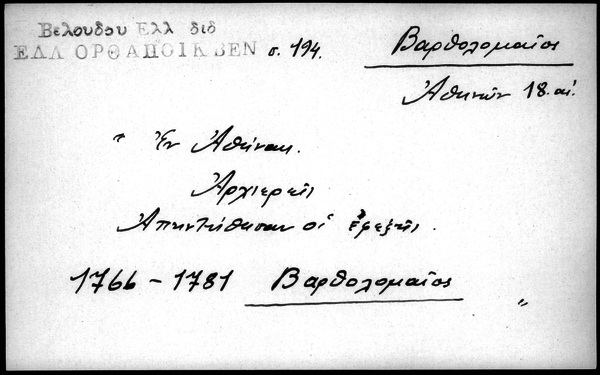 Βελουδου Ελλ διδ
ΕΛΛ ΟΡΘ ΑΠΟΙΚ ΒΕΝ σ. 194.
Βαρθολομαῖος
Ἀθηνῶν 18. αἰ.
" Ἐν Ἀθήναις.
Ἀρχιερεῖς
Ἀπηντήθησαν οἱ ἐφεξῆς.
1766 - 1781 Βαρθολομαῖος "